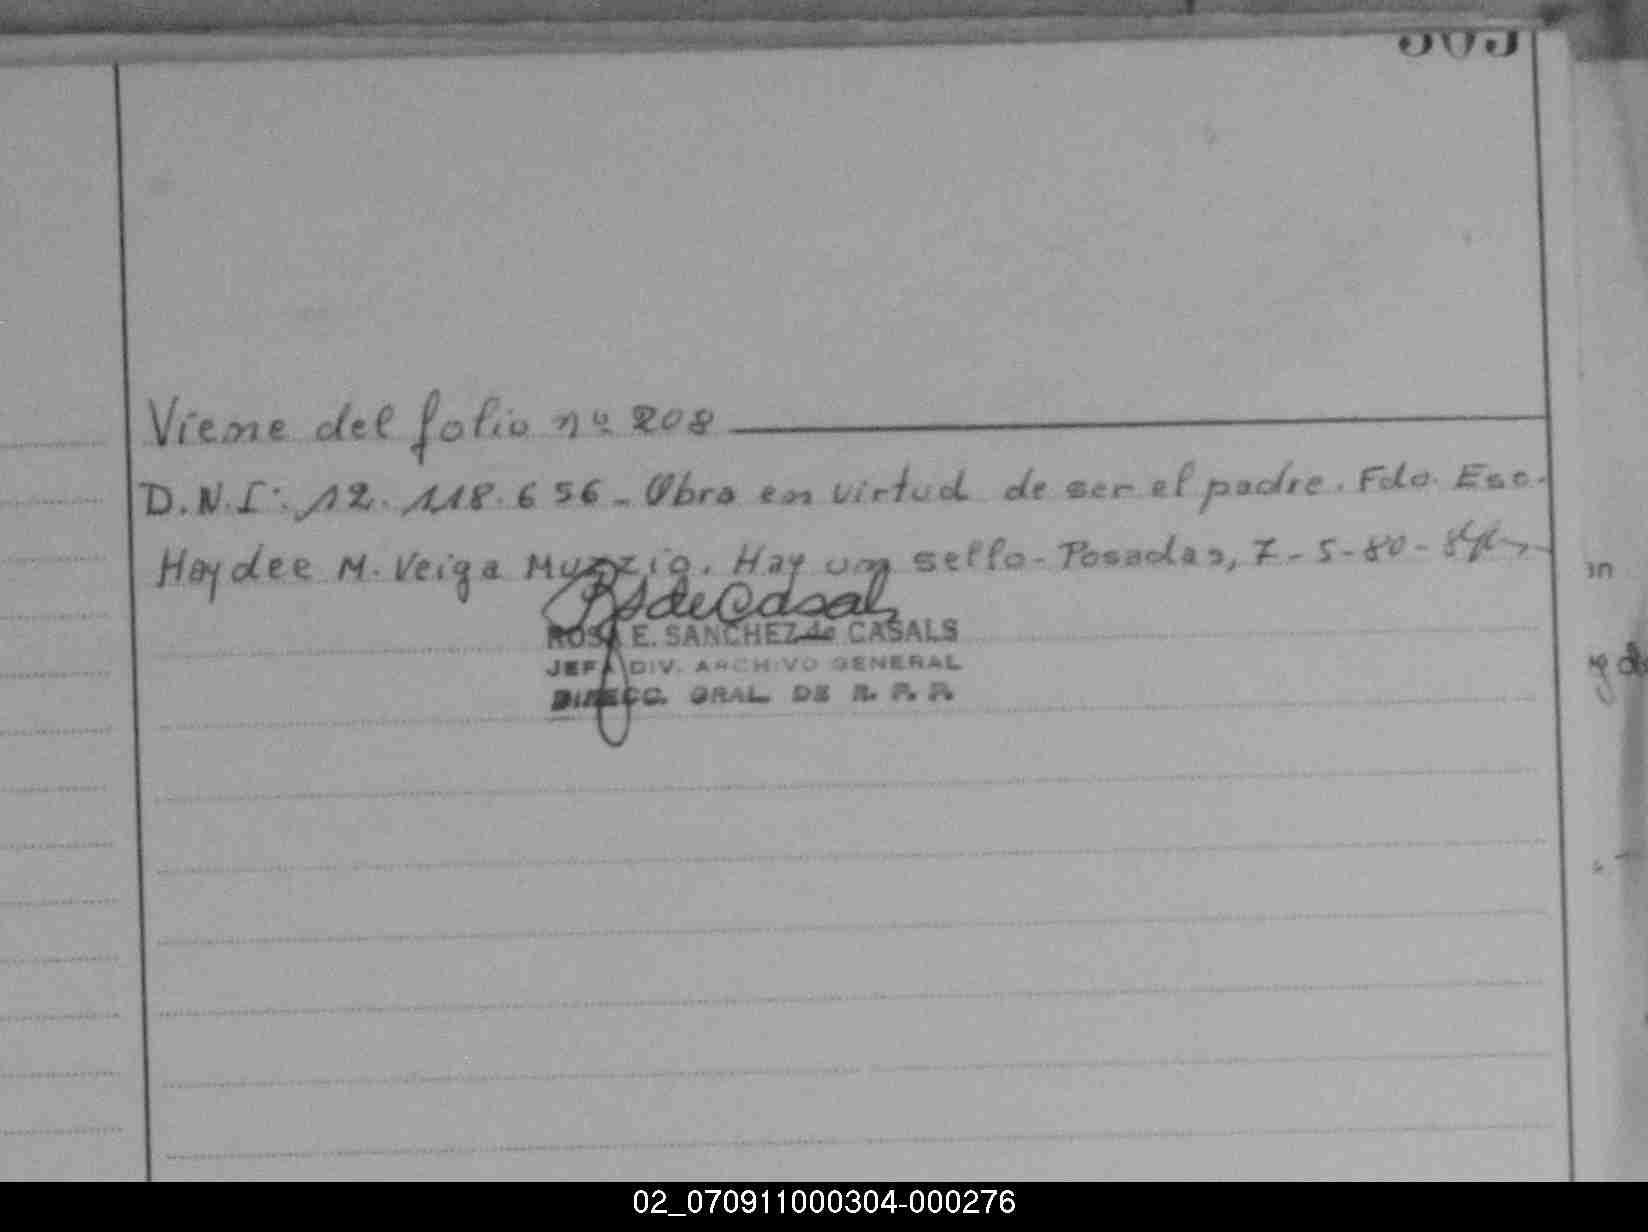 Viene del folio nº 208
D.N.I: 12.118.656 - Obra en virtud de ser el padre. Fdo. Esc.
Haydee M. Veiga Muzzio. Hay un sello - Posadas, 7-5-80-
ROSA E. SANCHEZ de CASALS
JEFA DIV. ARCHIVO GENERAL
DIRECC. GRAL DE R. P. P.
02_070911000304-000276